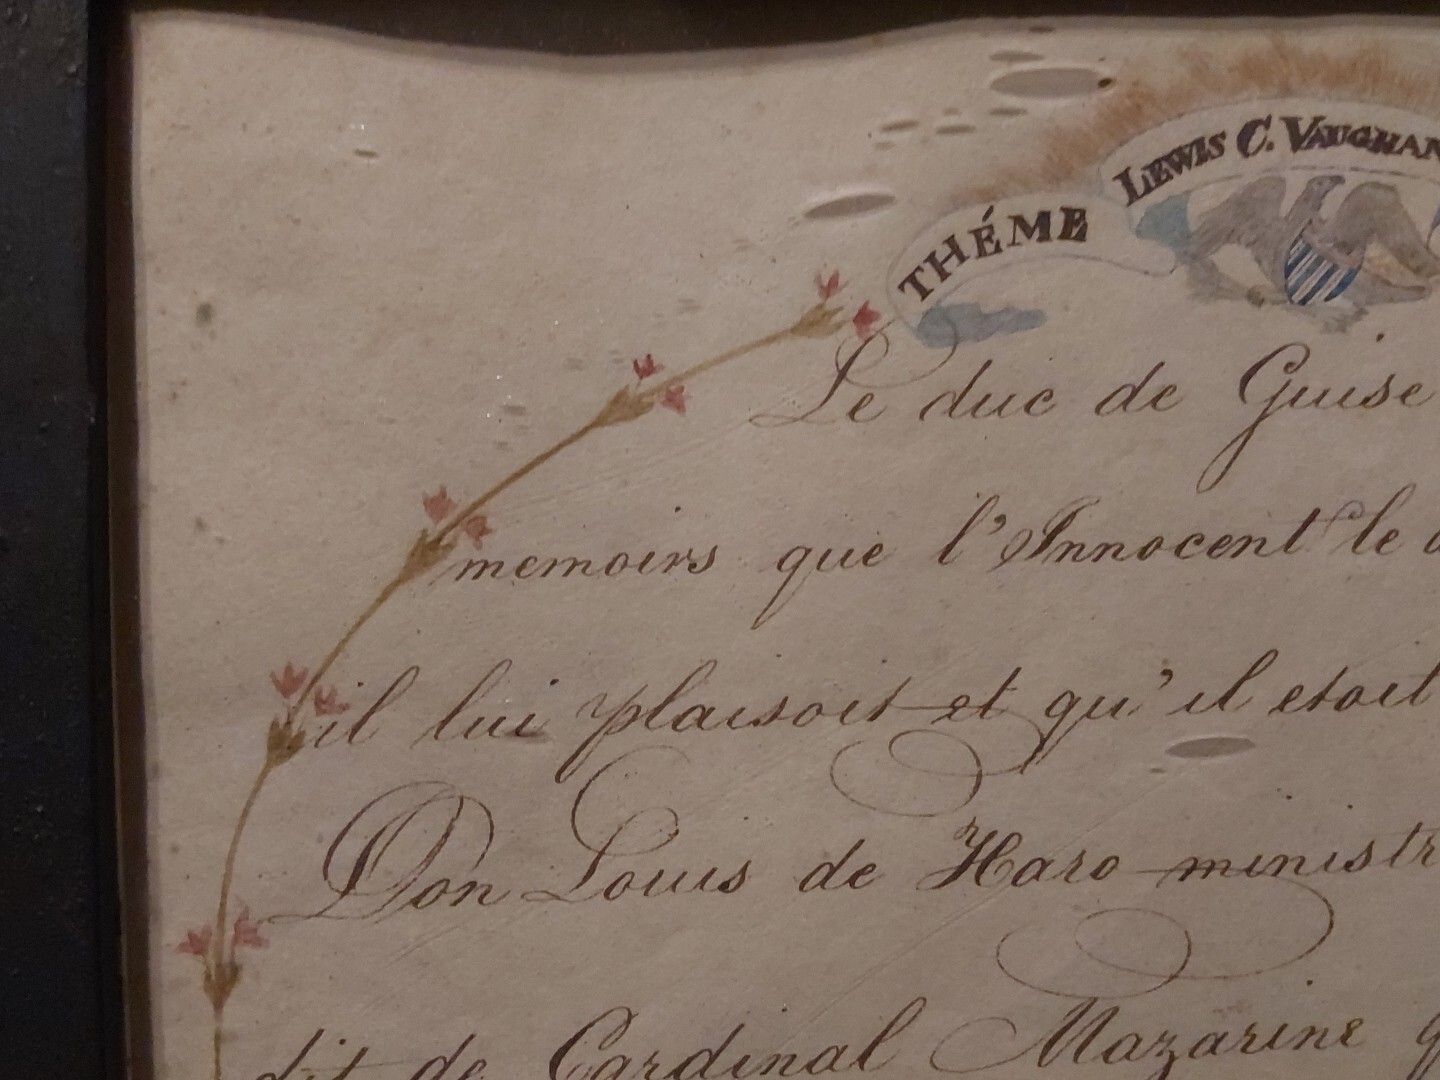 THÉME LEWIS C. VAUGHAN
Le duc de Guise
memoirs que l'Innocent le
il lui plaisoit et qu'il etoit
Don Louis de Haro ministr
dit de Cardinal Mazarine